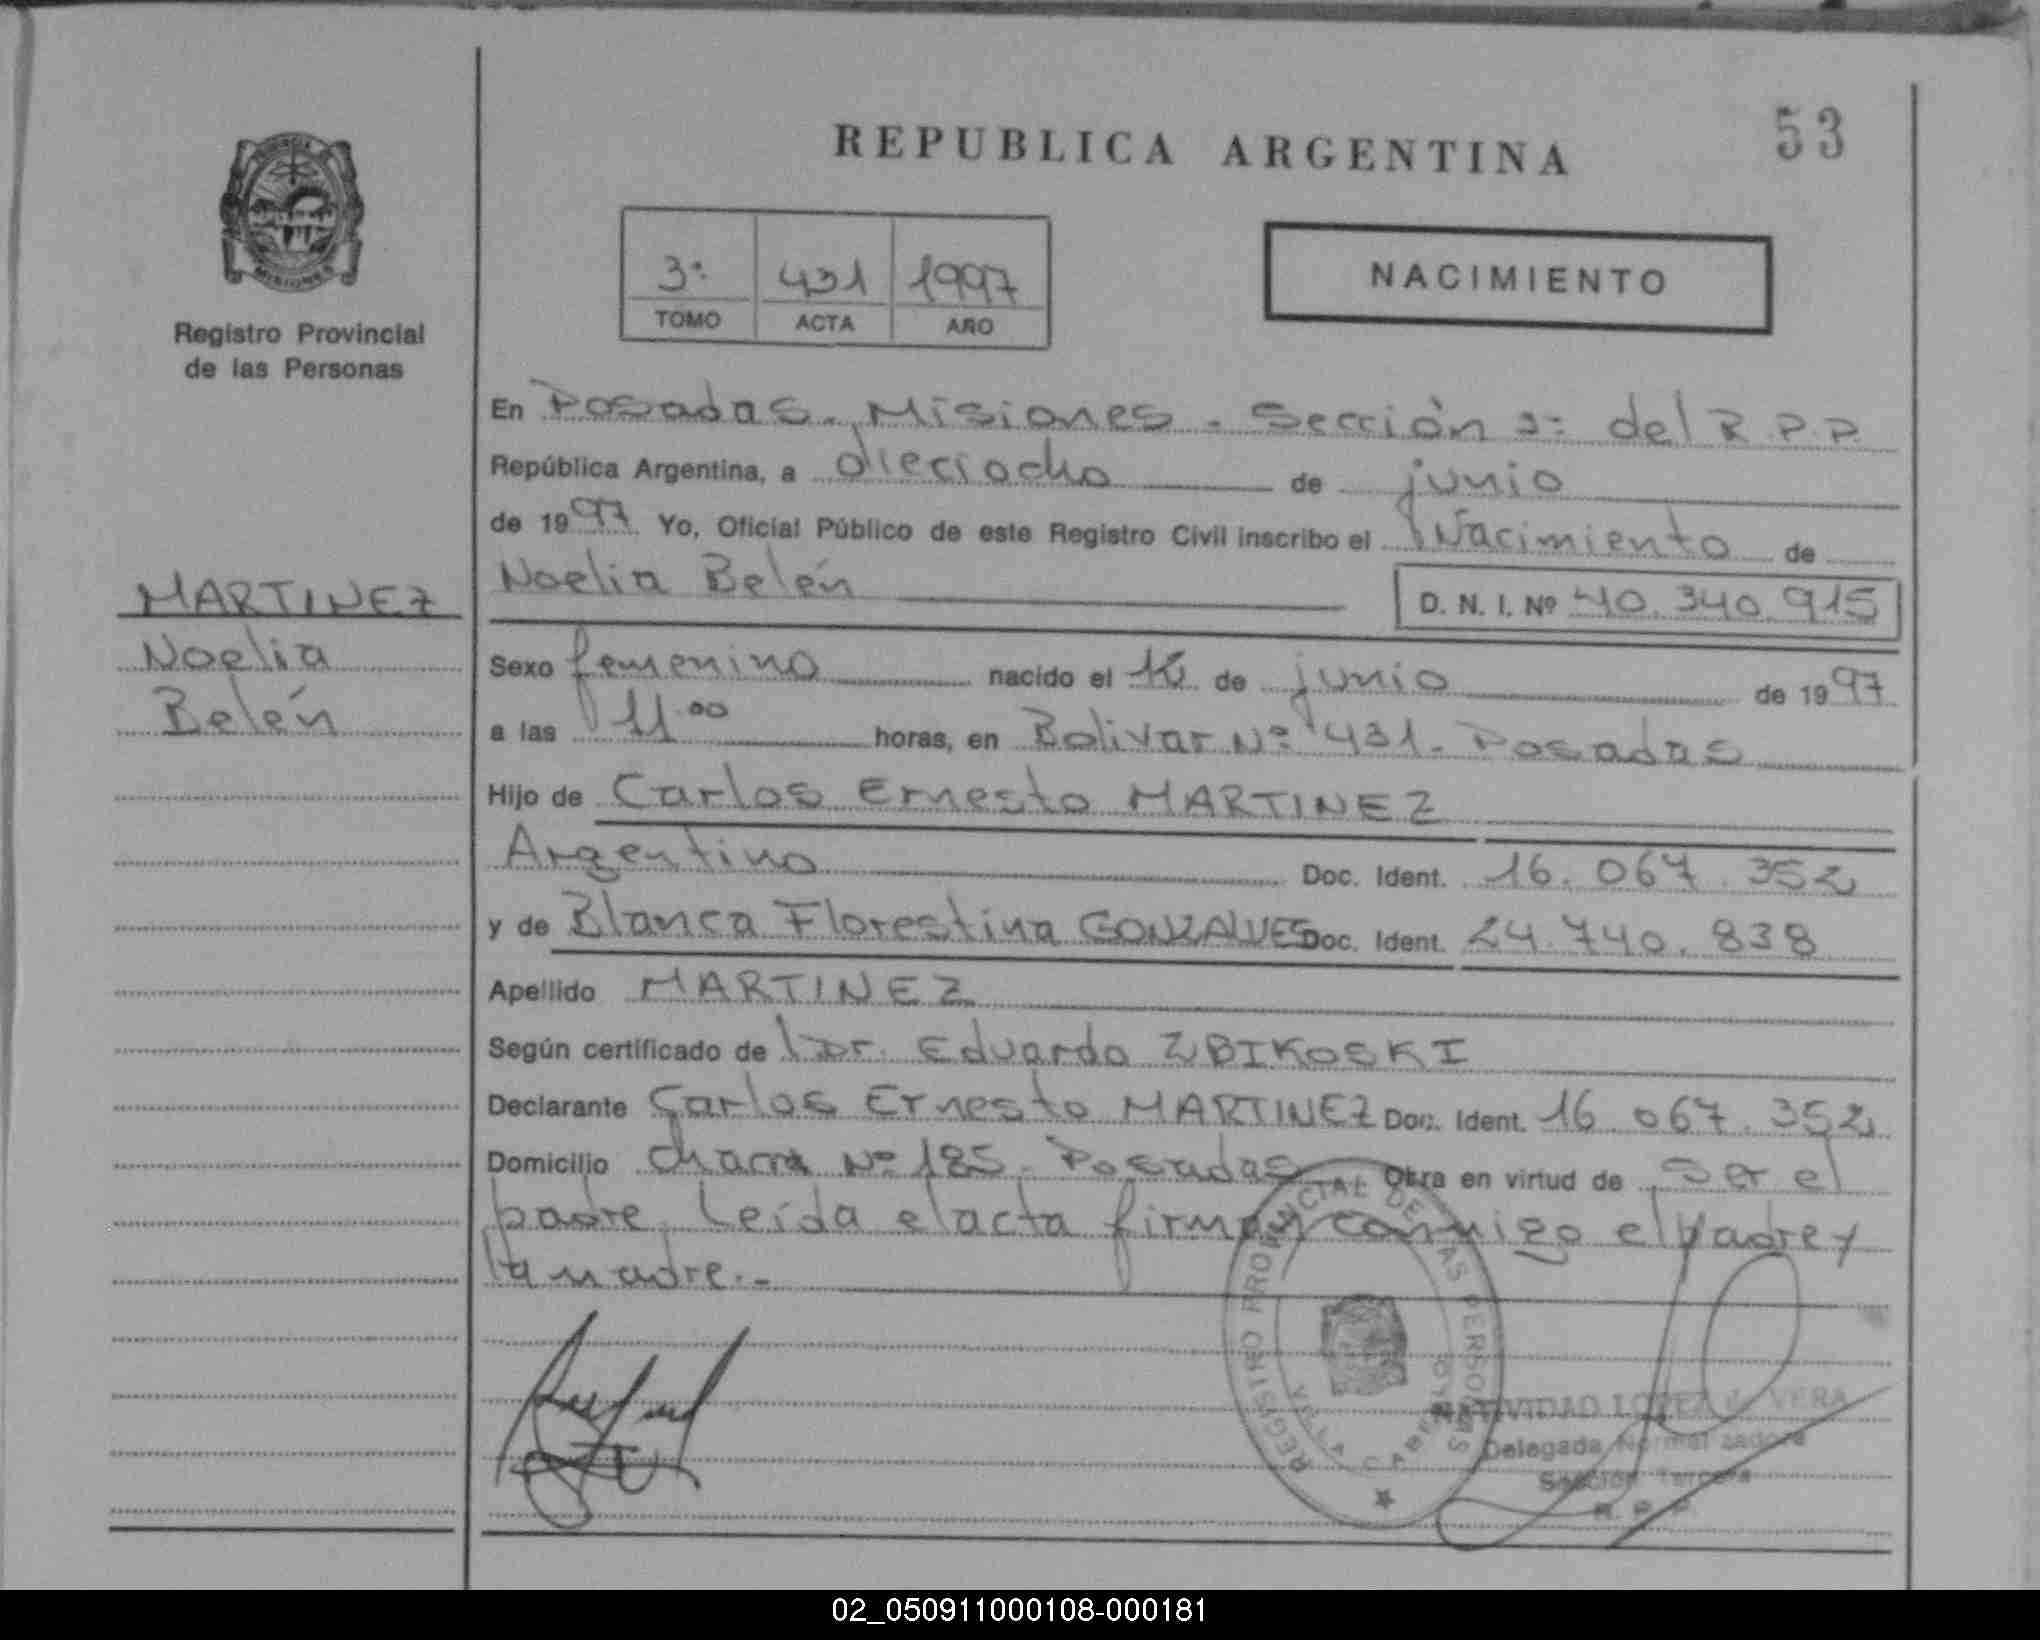 REPUBLICA ARGENTINA
53
Registro Provincial
de las Personas
3º 431 1997
TOMO ACTA AÑO
NACIMIENTO
En Posadas. Misiones. Sección 3º del R.P.P.
República Argentina, a dieciocho de junio
de 1997 Yo, Oficial Público de este Registro Civil inscribo el Nacimiento de
Noelia Belén D. N. I. Nº 40.340.915
MARTINEZ
Noelia
Belén
Sexo femenino nacido el de junio de 1997
a las 11 00 horas, en Bolivar Nº 431. Posadas
Hijo de Carlos Ernesto MARTINEZ
Argentino Doc. Ident. 16.067.352
y de Blanca Florestina GONZALVES Doc. Ident. 24.740.838
Apellido MARTINEZ
Según certificado de Dr. Eduardo ZBIKOSKI
Declarante Carlos Ernesto MARTINEZ Doc. Ident. 16.067.352
Domicilio chacra Nº 185. Posadas Obra en virtud de ser el
padre. Leída el acta firman conmigo el padre y
la madre.-
REGISTRO PROVINCIAL DE LAS PERSONAS
VILLA CABELLO
NATIVIDAD LOPEZ d. VERA
Delegada Normalizadora
Sección Tercera
R. P. P.
02_050911000108-000181